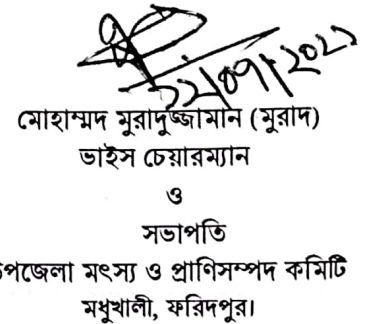 ১২/০৭/২০২২
মোহাম্মদ মুরাদুজ্জামান (মুরাদ)
ভাইস চেয়ারম্যান
ও
সভাপতি
উপজেলা মৎস্য ও প্রাণিসম্পদ কমিটি
মধুখালী, ফরিদপুর।